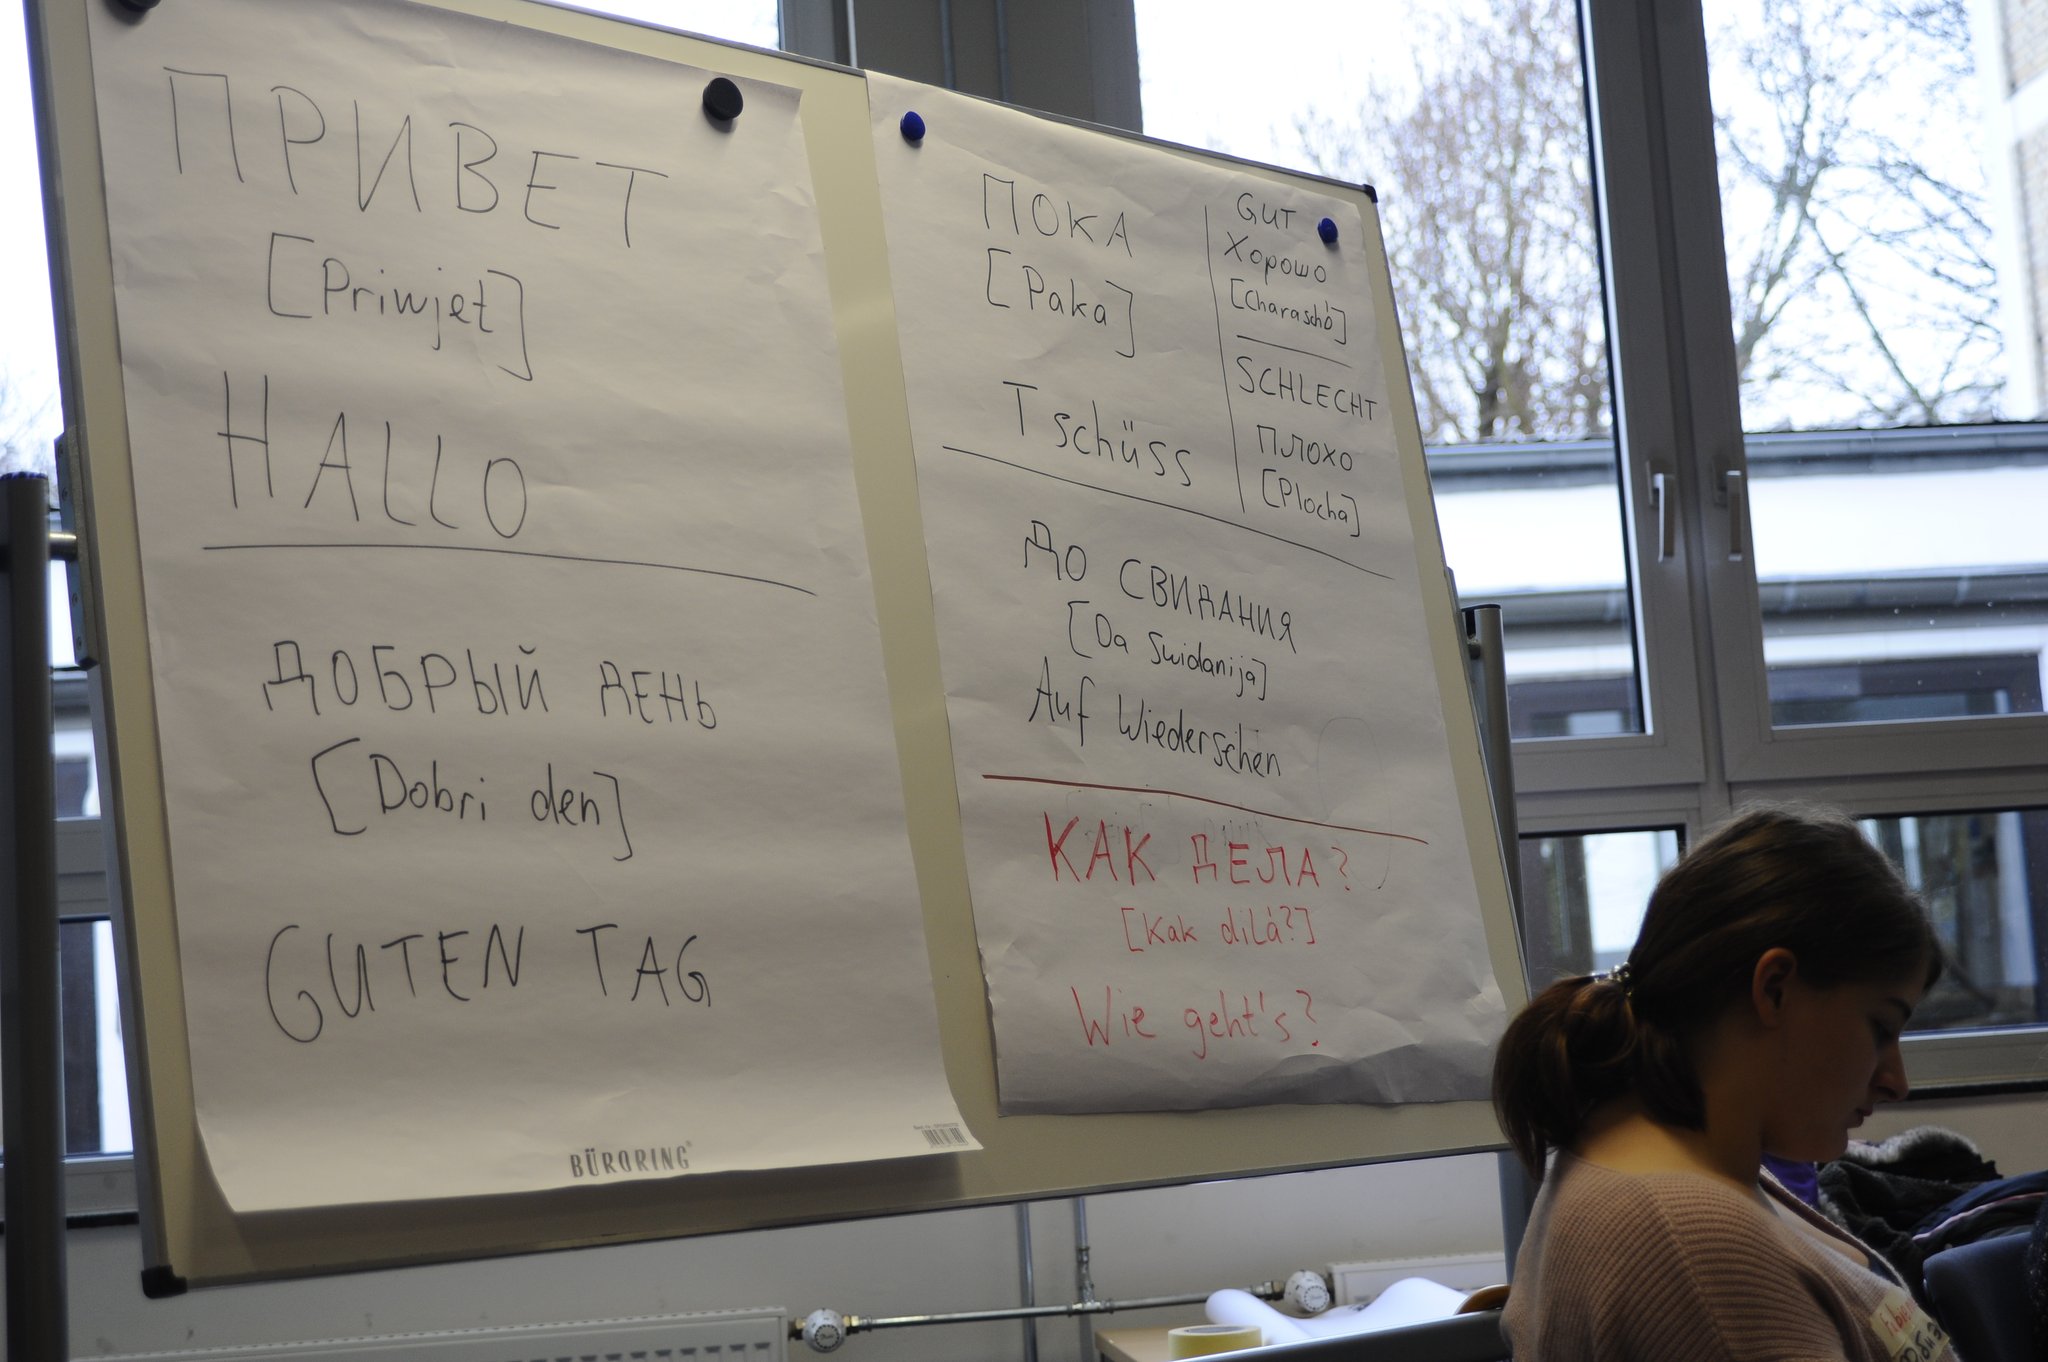 ПРИВЕТ
[Priwjet]
HALLO
ДОБРЫЙ ДЕНЬ
[Dobri den]
GUTEN TAG
BÜRORING
ПОКА
[Paka]
Tschüss
GUT
Хорошо
[Charaschó]
SCHLECHT
ПЛОХО
[Plocha]
ДО СВИДАНИЯ
[Da Swidanija]
Auf Wiedersehen
КАК ДЕЛА?
[Kak dilá?]
Wie geht's?